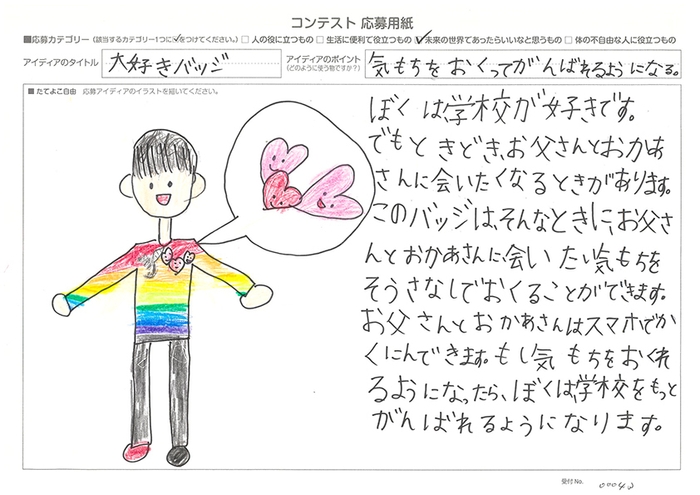 コンテスト 応募用紙
■応募カテゴリー（該当するカテゴリー1つに✓をつけてください。） □ 人の役に立つもの □ 生活に便利で役立つもの ☑ 未来の世界であったらいいなと思うもの □ 体の不自由な人に役立つもの
アイディアのタイトル 大好きバッジ
アイディアのポイント（どのように使う物ですか？） 気もちをおくってがんばれるようになる。
■ たてよこ自由 応募アイディアのイラストを描いてください。
ぼくは学校が好きです。
でもときどき、お父さんとおかあ
さんに会いたくなるときがあります。
このバッジは、そんなときに、お父さ
んとおかあさんに会いたい気もちを
そうさなしでおくることができます。
お父さんとおかあさんはスマホでか
くにんできます。もし気もちをおくれ
るようになったら、ぼくは学校をもっと
がんばれるようになります。
受付No. 00042